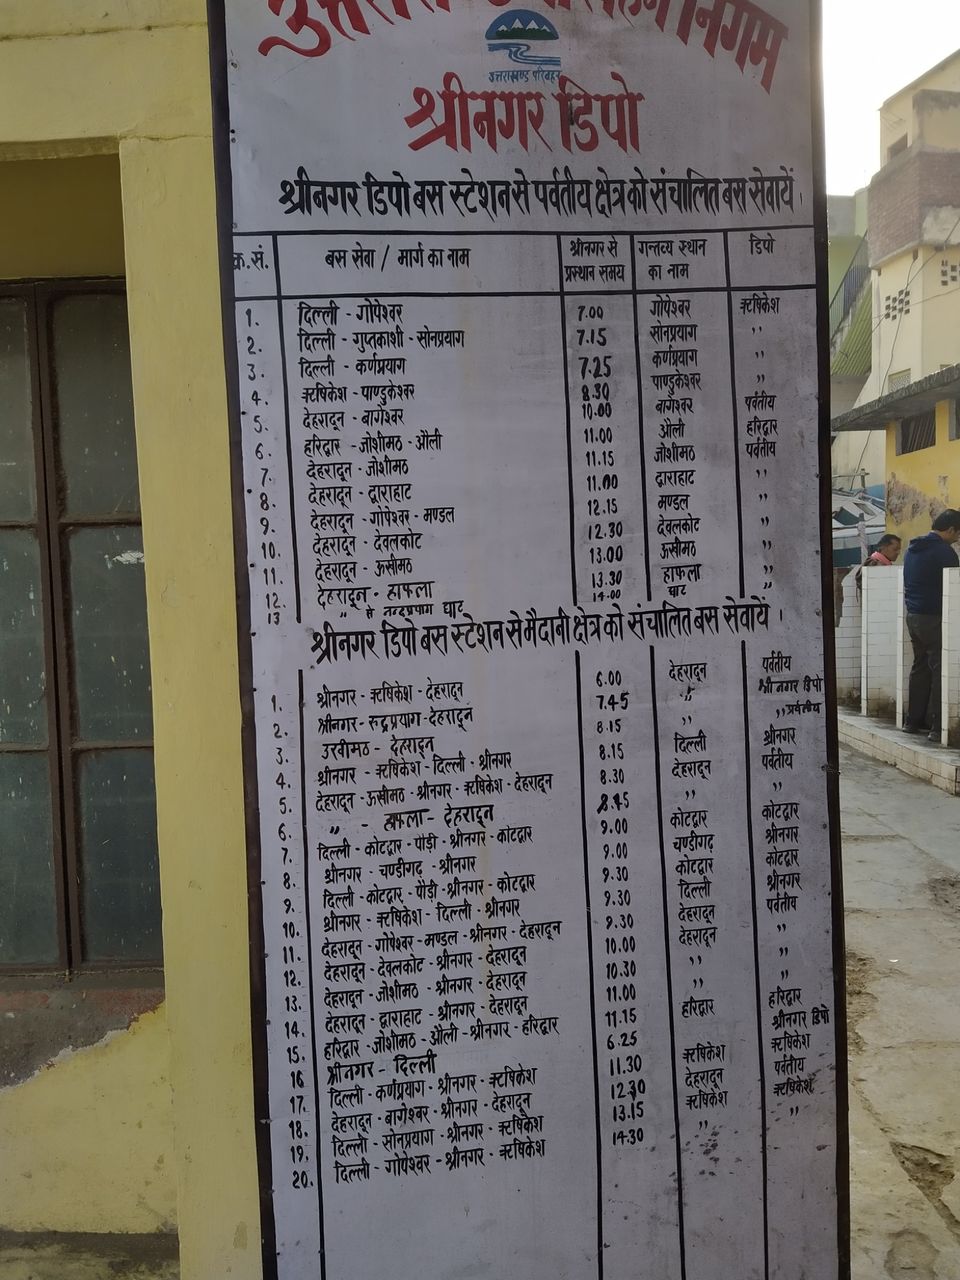 उत्तराखण्ड परिवहन निगम
उत्तराखण्ड परिवहन
श्रीनगर डिपो
श्रीनगर डिपो बस स्टेशन से पर्वतीय क्षेत्र को संचालित बस सेवायें ।
क्र.सं. बस सेवा / मार्ग का नाम श्रीनगर से प्रस्थान समय गन्तव्य स्थान का नाम डिपो
1. दिल्ली - गोपेश्वर 7.00 गोपेश्वर ऋषिकेश
2. दिल्ली - गुप्तकाशी - सोनप्रयाग 7.15 सोनप्रयाग ,,
3. दिल्ली - कर्णप्रयाग 7.25 कर्णप्रयाग ,,
4. ऋषिकेश - पाण्डुकेश्वर 8.30 पाण्डुकेश्वर ,,
5. देहरादून - बागेश्वर 10.00 बागेश्वर पर्वतीय
6. हरिद्वार - जोशीमठ - औली 11.00 औली हरिद्वार
7. देहरादून - जोशीमठ 11.15 जोशीमठ पर्वतीय
8. देहरादून - द्वाराहाट 11.00 द्वाराहाट ,,
9. देहरादून - गोपेश्वर - मण्डल 12.15 मण्डल ,,
10. देहरादून - देवलकोट 12.30 देवलकोट ,,
11. देहरादून - ऊखीमठ 13.00 ऊखीमठ ,,
12. देहरादून - हाफला 13.30 हाफला ,,
13 ,, से नन्दप्रयाग घाट 14.00 घाट ,,
श्रीनगर डिपो बस स्टेशन से मैदानी क्षेत्र को संचालित बस सेवायें ।
1. श्रीनगर - ऋषिकेश - देहरादून 6.00 देहरादून पर्वतीय
2. श्रीनगर - रुद्रप्रयाग - देहरादून 7.45 ,, श्रीनगर डिपो
3. उखीमठ - देहरादून 8.15 ,, ,, पर्वतीय
4. श्रीनगर - ऋषिकेश - दिल्ली - श्रीनगर 8.15 दिल्ली श्रीनगर
5. देहरादून - ऊखीमठ - श्रीनगर - ऋषिकेश - देहरादून 8.30 देहरादून पर्वतीय
6. ,, - हाफला - देहरादून 8.45 ,, ,,
7. दिल्ली - कोटद्वार - पौड़ी - श्रीनगर - कोटद्वार 9.00 कोटद्वार कोटद्वार
8. श्रीनगर - चण्डीगढ़ - श्रीनगर 9.00 चण्डीगढ़ श्रीनगर
9. दिल्ली - कोटद्वार - पौड़ी - श्रीनगर - कोटद्वार 9.30 कोटद्वार कोटद्वार
10. श्रीनगर - ऋषिकेश - दिल्ली - श्रीनगर 9.30 दिल्ली श्रीनगर
11. देहरादून - गोपेश्वर - मण्डल - श्रीनगर - देहरादून 9.30 देहरादून पर्वतीय
12. देहरादून - देवलकोट - श्रीनगर - देहरादून 10.00 देहरादून ,,
13. देहरादून - जोशीमठ - श्रीनगर - देहरादून 10.30 ,, ,,
14. देहरादून - द्वाराहाट - श्रीनगर - देहरादून 11.00 ,, ,,
15. हरिद्वार - जोशीमठ - औली - श्रीनगर - हरिद्वार 11.15 हरिद्वार हरिद्वार
16 श्रीनगर - दिल्ली 6.25 श्रीनगर डिपो
17. दिल्ली - कर्णप्रयाग - श्रीनगर - ऋषिकेश 11.30 ऋषिकेश ऋषिकेश
18. देहरादून - बागेश्वर - श्रीनगर - देहरादून 12.30 देहरादून पर्वतीय
19. दिल्ली - सोनप्रयाग - श्रीनगर - ऋषिकेश 13.15 ऋषिकेश ऋषिकेश
20. दिल्ली - गोपेश्वर - श्रीनगर - ऋषिकेश 14.30 ,, ,,